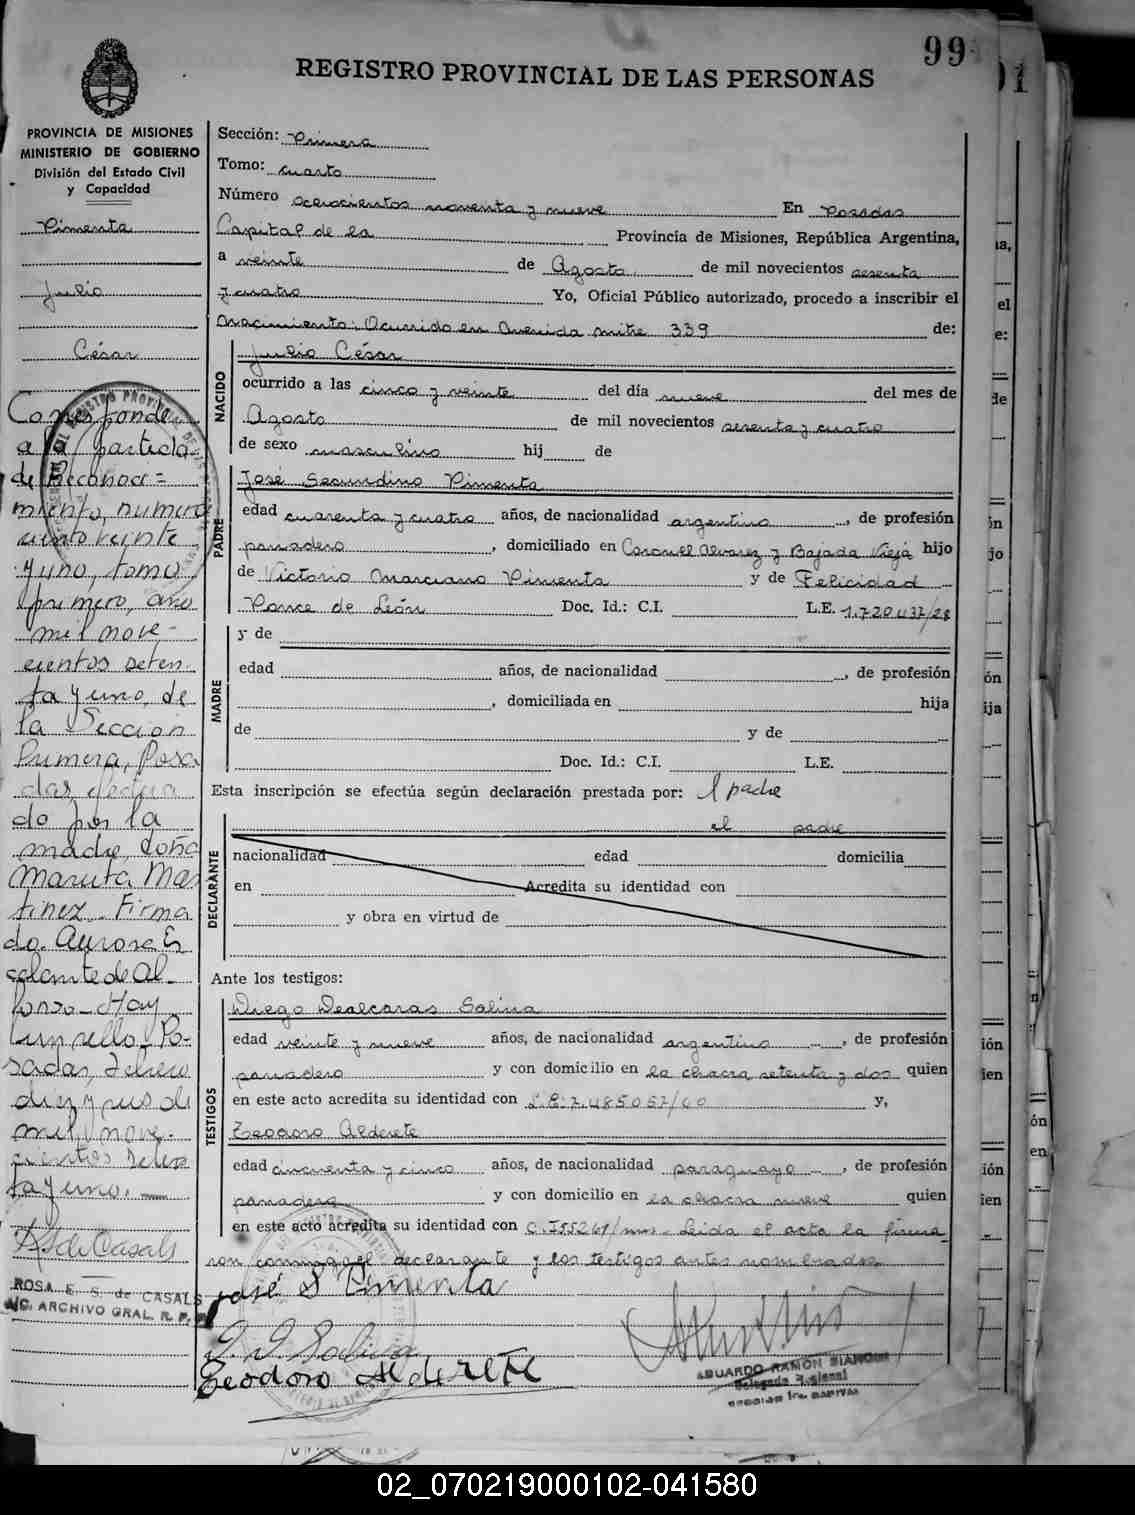 99
REGISTRO PROVINCIAL DE LAS PERSONAS
PROVINCIA DE MISIONES
MINISTERIO DE GOBIERNO
División del Estado Civil
y Capacidad
Pimenta
Julio
César
Corresponde
a la partida
de Reconoci=
miento, numero
ciento veinte
y uno, tomo
primero, año
mil nove-
cientos seten
ta y uno, de
la Sección
Primera, Posa
das, efectua
do por la
madre, doña
Maruta Mar
tinez. Firma
do. Aurora Es
calante de Al-
fonso - Hay
un sello - Po-
sadas, Febrero
diez y seis de
mil nove-
cientos seten
ta y uno.
ROSA E. S. de CASALS
ARCHIVO GRAL. R. P.
Sección: Primera
Tomo: cuarto
Número ochocientos noventa y nueve En Posadas
Capital de la Provincia de Misiones, República Argentina,
a veinte de Agosto de mil novecientos sesenta
y cuatro Yo, Oficial Público autorizado, procedo a inscribir el
Nacimiento: Ocurrido en Avenida mitre 339 de:
NACIDO
Julio César
ocurrido a las cinco y veinte del día nueve del mes de
Agosto de mil novecientos sesenta y cuatro
de sexo masculino hij de
PADRE
José Secundino Pimenta
edad cuarenta y cuatro años, de nacionalidad argentino, de profesión
panadero, domiciliado en Coronel Alvarez y Bajada Vieja hijo
de Victorio Marciano Pimenta y de Felicidad
Ponce de León Doc. Id.: C.I. L.E. 1.720.437/28
MADRE
y de
edad años, de nacionalidad, de profesión
, domiciliada en hija
de y de
Doc. Id.: C.I. L.E.
Esta inscripción se efectúa según declaración prestada por: el padre
el padre
DECLARANTE
nacionalidad edad domicilia
en Acredita su identidad con
y obra en virtud de
Ante los testigos:
TESTIGOS
Diego Dealcaras Salina
edad veinte y nueve años, de nacionalidad argentino, de profesión
panadero y con domicilio en la chacra setenta y dos quien
en este acto acredita su identidad con L.E. 7.485057/60 y,
Teodoro Alderete
edad cincuenta y cinco años, de nacionalidad paraguayo, de profesión
panadero y con domicilio en la chacra nueve quien
en este acto acredita su identidad con C.I 55261/mns. Leida el acta la firma
con conmigo el declarante y los testigos antes nombrados.
José S Pimenta
D. D. Salina
Teodoro Alderete
EDUARDO RAMON BIANCHI
Delegado Regional
SECCION 1ra. CAPITAL
02_070219000102-041580